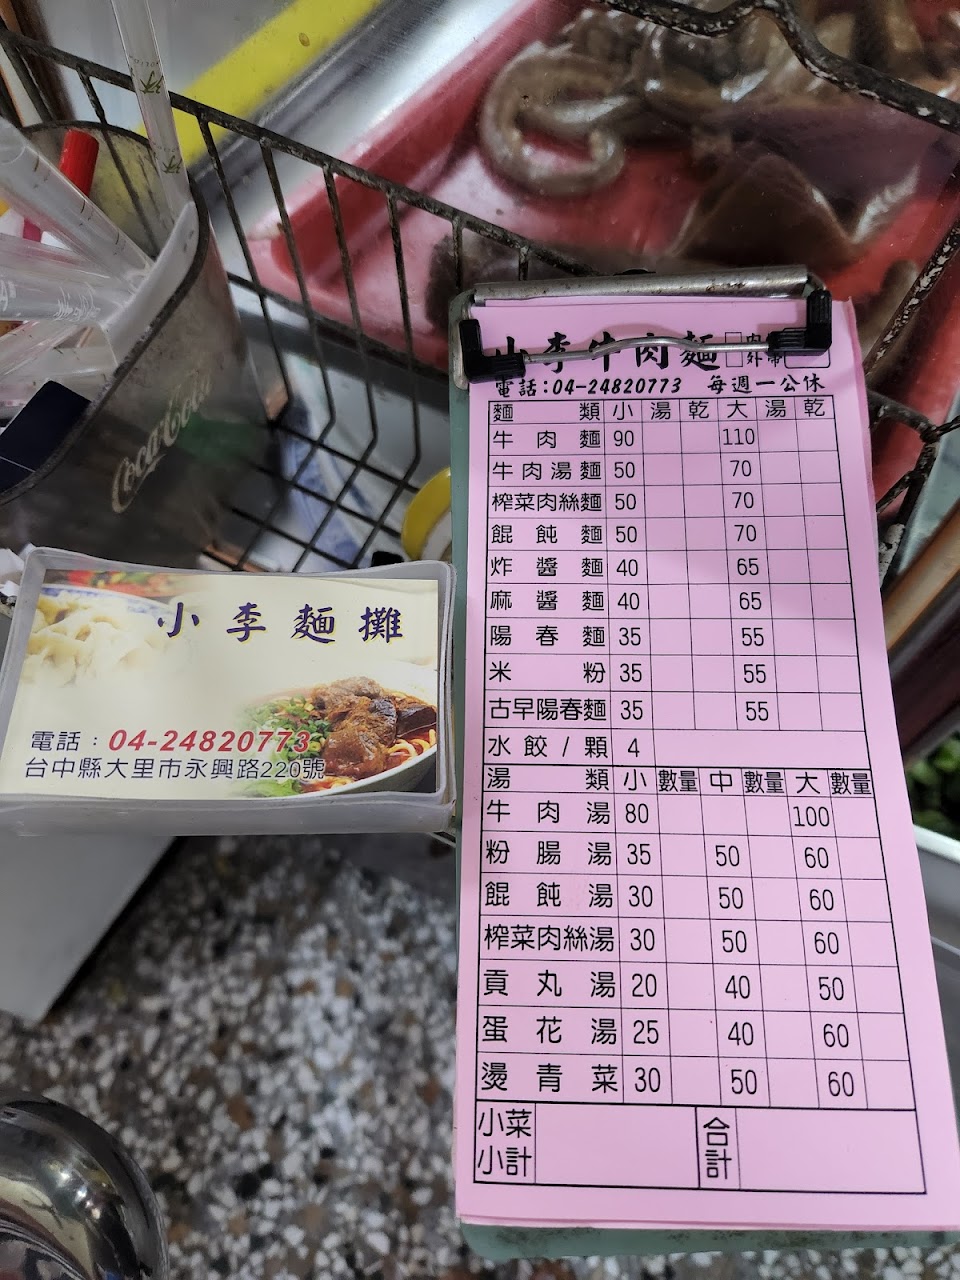 Coca-Cola
小李麵攤
電話：04-24820773
台中縣大里市永興路220號
小李牛肉麵 □內 □外帶
電話:04-24820773 每週一公休
麵類 小 湯 乾 大 湯 乾
牛肉麵 90 110
牛肉湯麵 50 70
榨菜肉絲麵 50 70
餛飩麵 50 70
炸醬麵 40 65
麻醬麵 40 65
陽春麵 35 55
米粉 35 55
古早陽春麵 35 55
水餃/顆 4
湯類 小 數量 中 數量 大 數量
牛肉湯 80 100
粉腸湯 35 50 60
餛飩湯 30 50 60
榨菜肉絲湯 30 50 60
貢丸湯 20 40 50
蛋花湯 25 40 60
燙青菜 30 50 60
小菜小計 合計